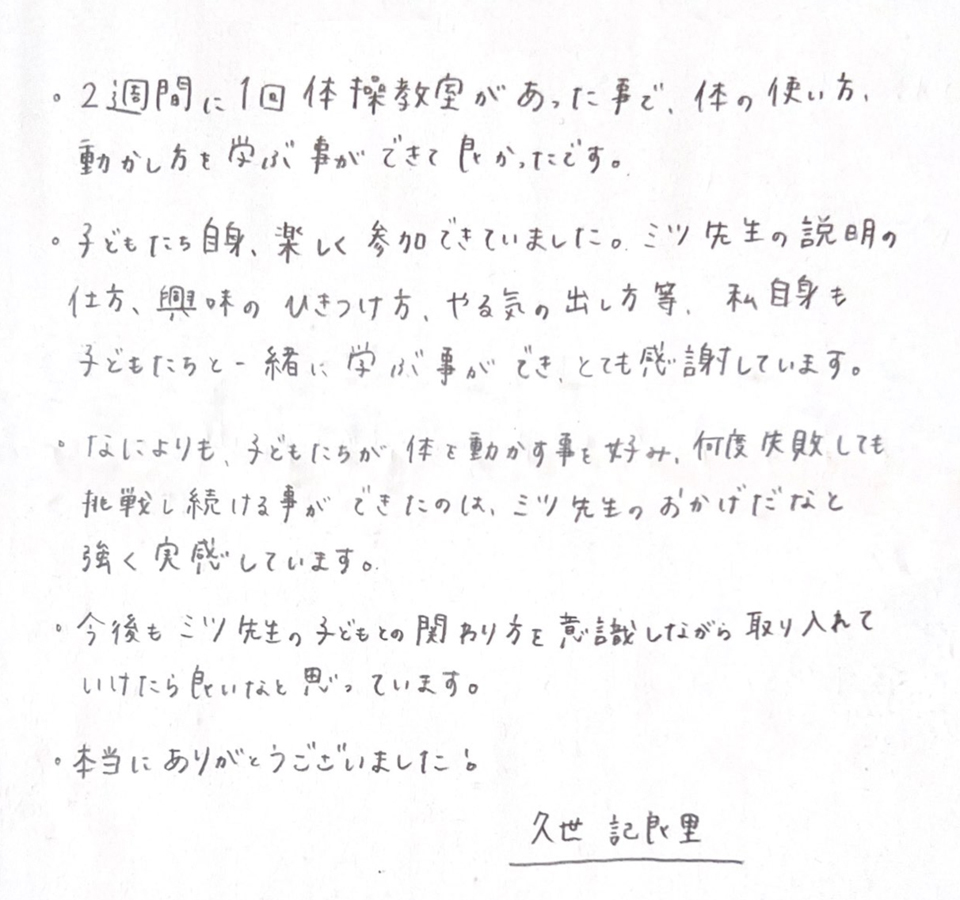 。2週間に1回 体操教室があった事で、体の使い方、
動かし方を学ぶ事ができて良かったです。
。子どもたち自身、楽しく参加できていました。ミツ先生の説明の
仕方、興味のひきつけ方、やる気の出し方等、私自身も
子どもたちと一緒に学ぶ事ができ、とても感謝しています。
。なによりも、子どもたちが体を動かす事を好み、何度失敗しても
挑戦し続ける事ができたのは、ミツ先生のおかげだなと
強く実感しています。
。今後もミツ先生の子どもとの関わり方を意識しながら取り入れて
いけたら良いなと思っています。
。本当にありがとうございました!
久世 記良里